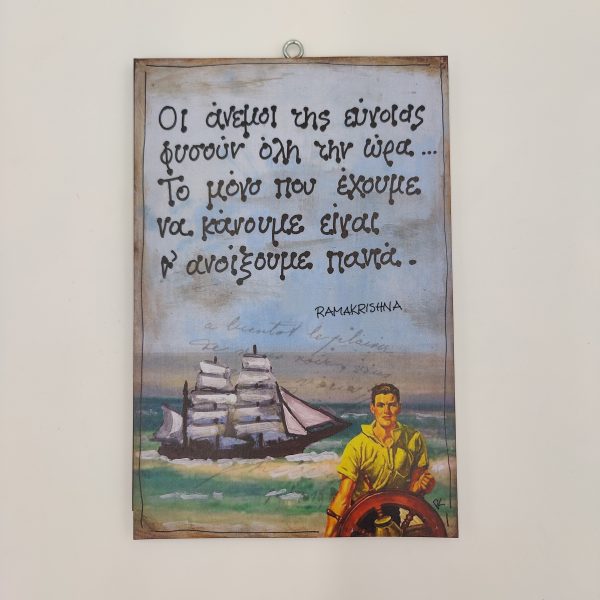 Οι άνεμοι της εύνοιας
φυσούν όλη την ώρα...
Το μόνο που έχουμε
να κάνουμε είναι
ν' ανοίξουμε πανιά.
RAMAKRISHNA
a bientot le plaisir
de